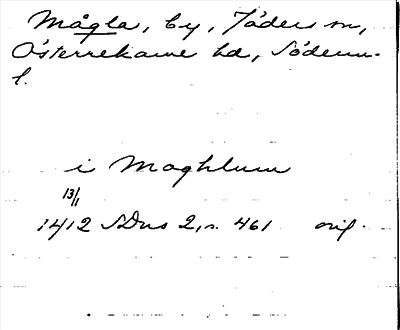 Mågla, by, Jäders sn,
Österrekarne hd, Söderm-
l.
i Moghlum
13/1
1412 SDns 2, s. 461 orig.